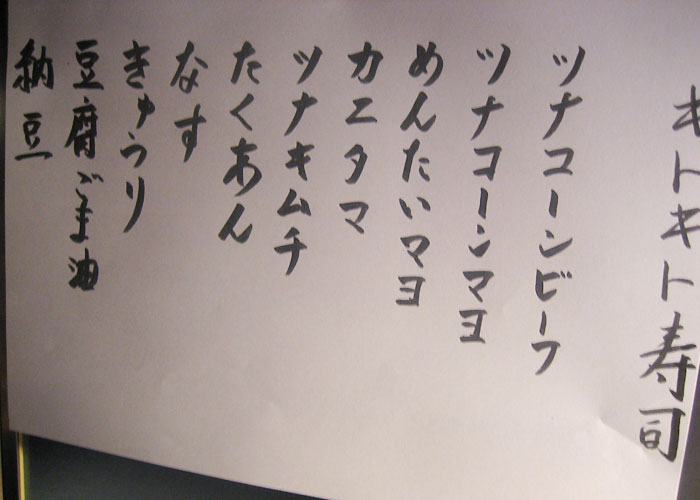 キトキト寿司
ツナコーンビーフ
ツナコーンマヨ
めんたいマヨ
カエタマ
ツナキムチ
たくあん
なす
きゅうり
豆腐ごま油
納豆